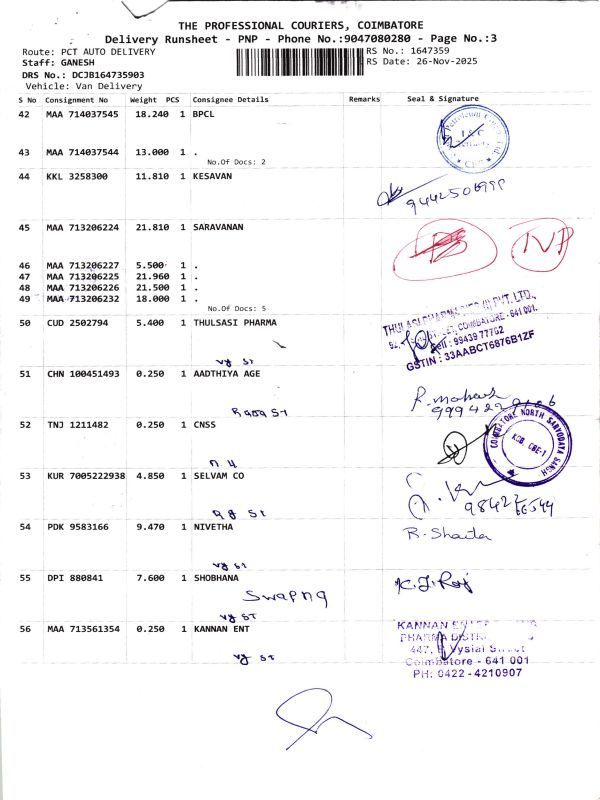 THE PROFESSIONAL COURIERS, COIMBATORE
Delivery Runsheet - PNP - Phone No.:9047080280 - Page No.:3
Route: PCT AUTO DELIVERY RS No.: 1647359
Staff: GANESH RS Date: 26-Nov-2025
DRS No.: DCJB164735903
Vehicle: Van Delivery
S No Consignment No Weight PCS Consignee Details Remarks Seal & Signature
42 MAA 714037545 18.240 1 BPCL
43 MAA 714037544 13.000 1 .
No.Of Docs: 2
44 KKL 3258300 11.810 1 KESAVAN
45 MAA 713206224 21.810 1 SARAVANAN
46 MAA 713206227 5.500 1 .
47 MAA 713206225 21.960 1 .
48 MAA 713206226 21.500 1 .
49 MAA 713206232 18.000 1 .
No.Of Docs: 5
50 CUD 2502794 5.400 1 THULSASI PHARMA
COIMBATORE - 641 001.
Cell : 99439 77762
GSTIN : 33AABCT6876B1ZF
vy st
51 CHN 100451493 0.250 1 AADTHIYA AGE
R. mohan
Raja St
52 TNJ 1211482 0.250 1 CNSS
COIMBATORE NORTH SARVODAYA SANGH
n. 4
53 KUR 7005222938 4.850 1 SELVAM CO
54 PDK 9583166 9.470 1 NIVETHA
vy st
55 DPI 880841 7.600 1 SHOBHANA
Swapna
vy ST
56 MAA 713561354 0.250 1 KANNAN ENT
KANNAN
PHARMA
447, Vysial Street
Coimbatore - 641 001
PH: 0422 - 4210907
vy ST